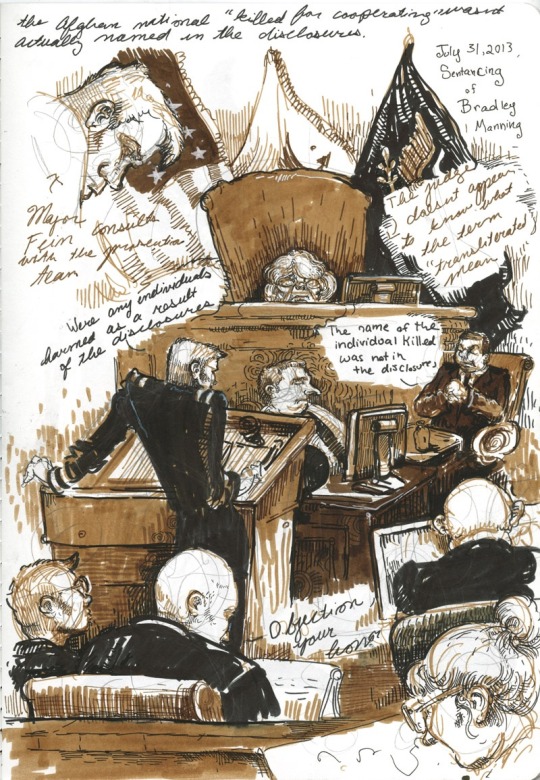 the Afghan national "killed for cooperating" wasn't
actually named in the disclosures.
July 31, 2013,
Sentancing
of
Bradley
Manning
Major
Fein consults
with the prosecution
team
The judge
doesn't appear
to know what
the term
"transliterated"
mean
Were any individuals
harmed as a result
of the disclosures
The name of the
individual killed
was not in
the disclosure.
Objection
your
honor